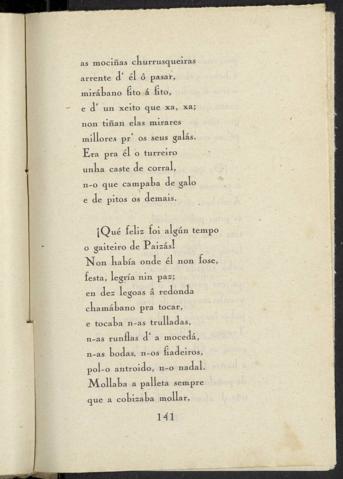 as mociñas churrusqueiras
arrente d' él ô pasar,
mirábano fito á fito,
e d' un xeito que xa, xa;
non tiñan elas mirares
millores pr' os seus galás.
Era pra él o turreiro
unha caste de corral,
n-o que campaba de galo
e de pitos os demais.
¡Qué feliz foi algún tempo
o gaiteiro de Paizás!
Non había onde él non fose,
festa, legría nin paz;
en dez legoas â redonda
chamábano pra tocar,
e tocaba n-as trulladas,
n-as runflas d' a mocedá,
n-as bodas, n-os fiadeiros,
pol-o antroido, n-o nadal.
Mollaba a palleta sempre
que a cobizaba mollar,
141